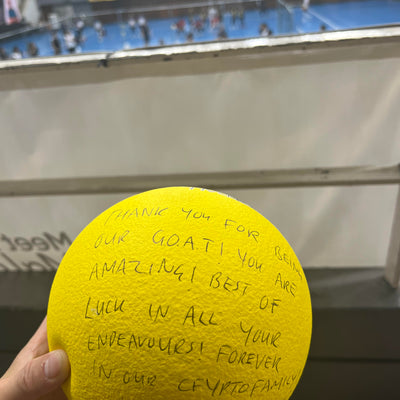 THANK YOU FOR BEING
OUR G.O.A.T! YOU ARE
AMAZING! BEST OF
LUCK IN ALL YOUR
ENDEAVOURS! FOREVER
IN OUR CFYPTOFAMILY
Meet